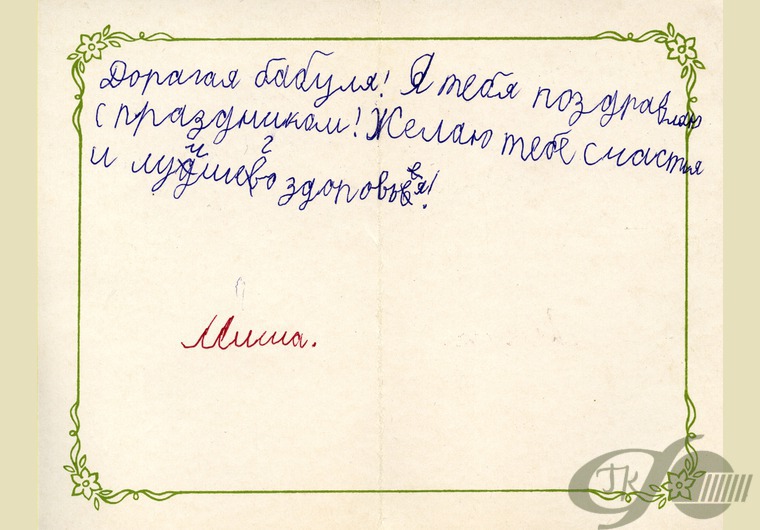 Дорагая бабуля! Я тебя поздравляю
с праздником! Желаю тебе счастья
и лучшего здоровья!
Миша.